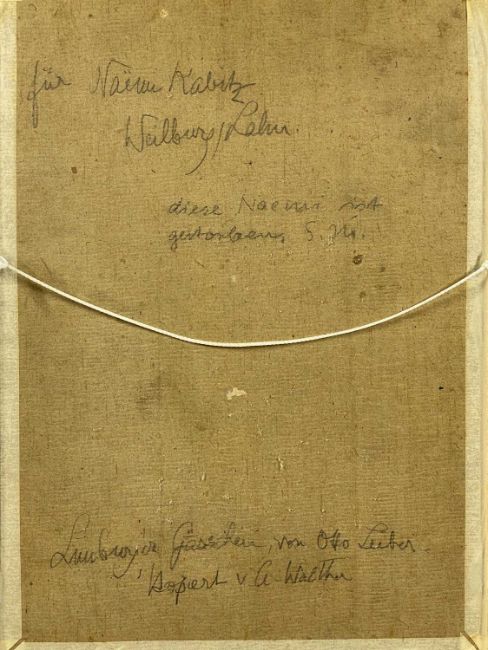 für Naëmi Kabitz
Weilburg/Lahn.
diese Naemi ist
gestorben, S. M.
Limburger Gässchen, von Otto Luber.
Kopiert v A Walther